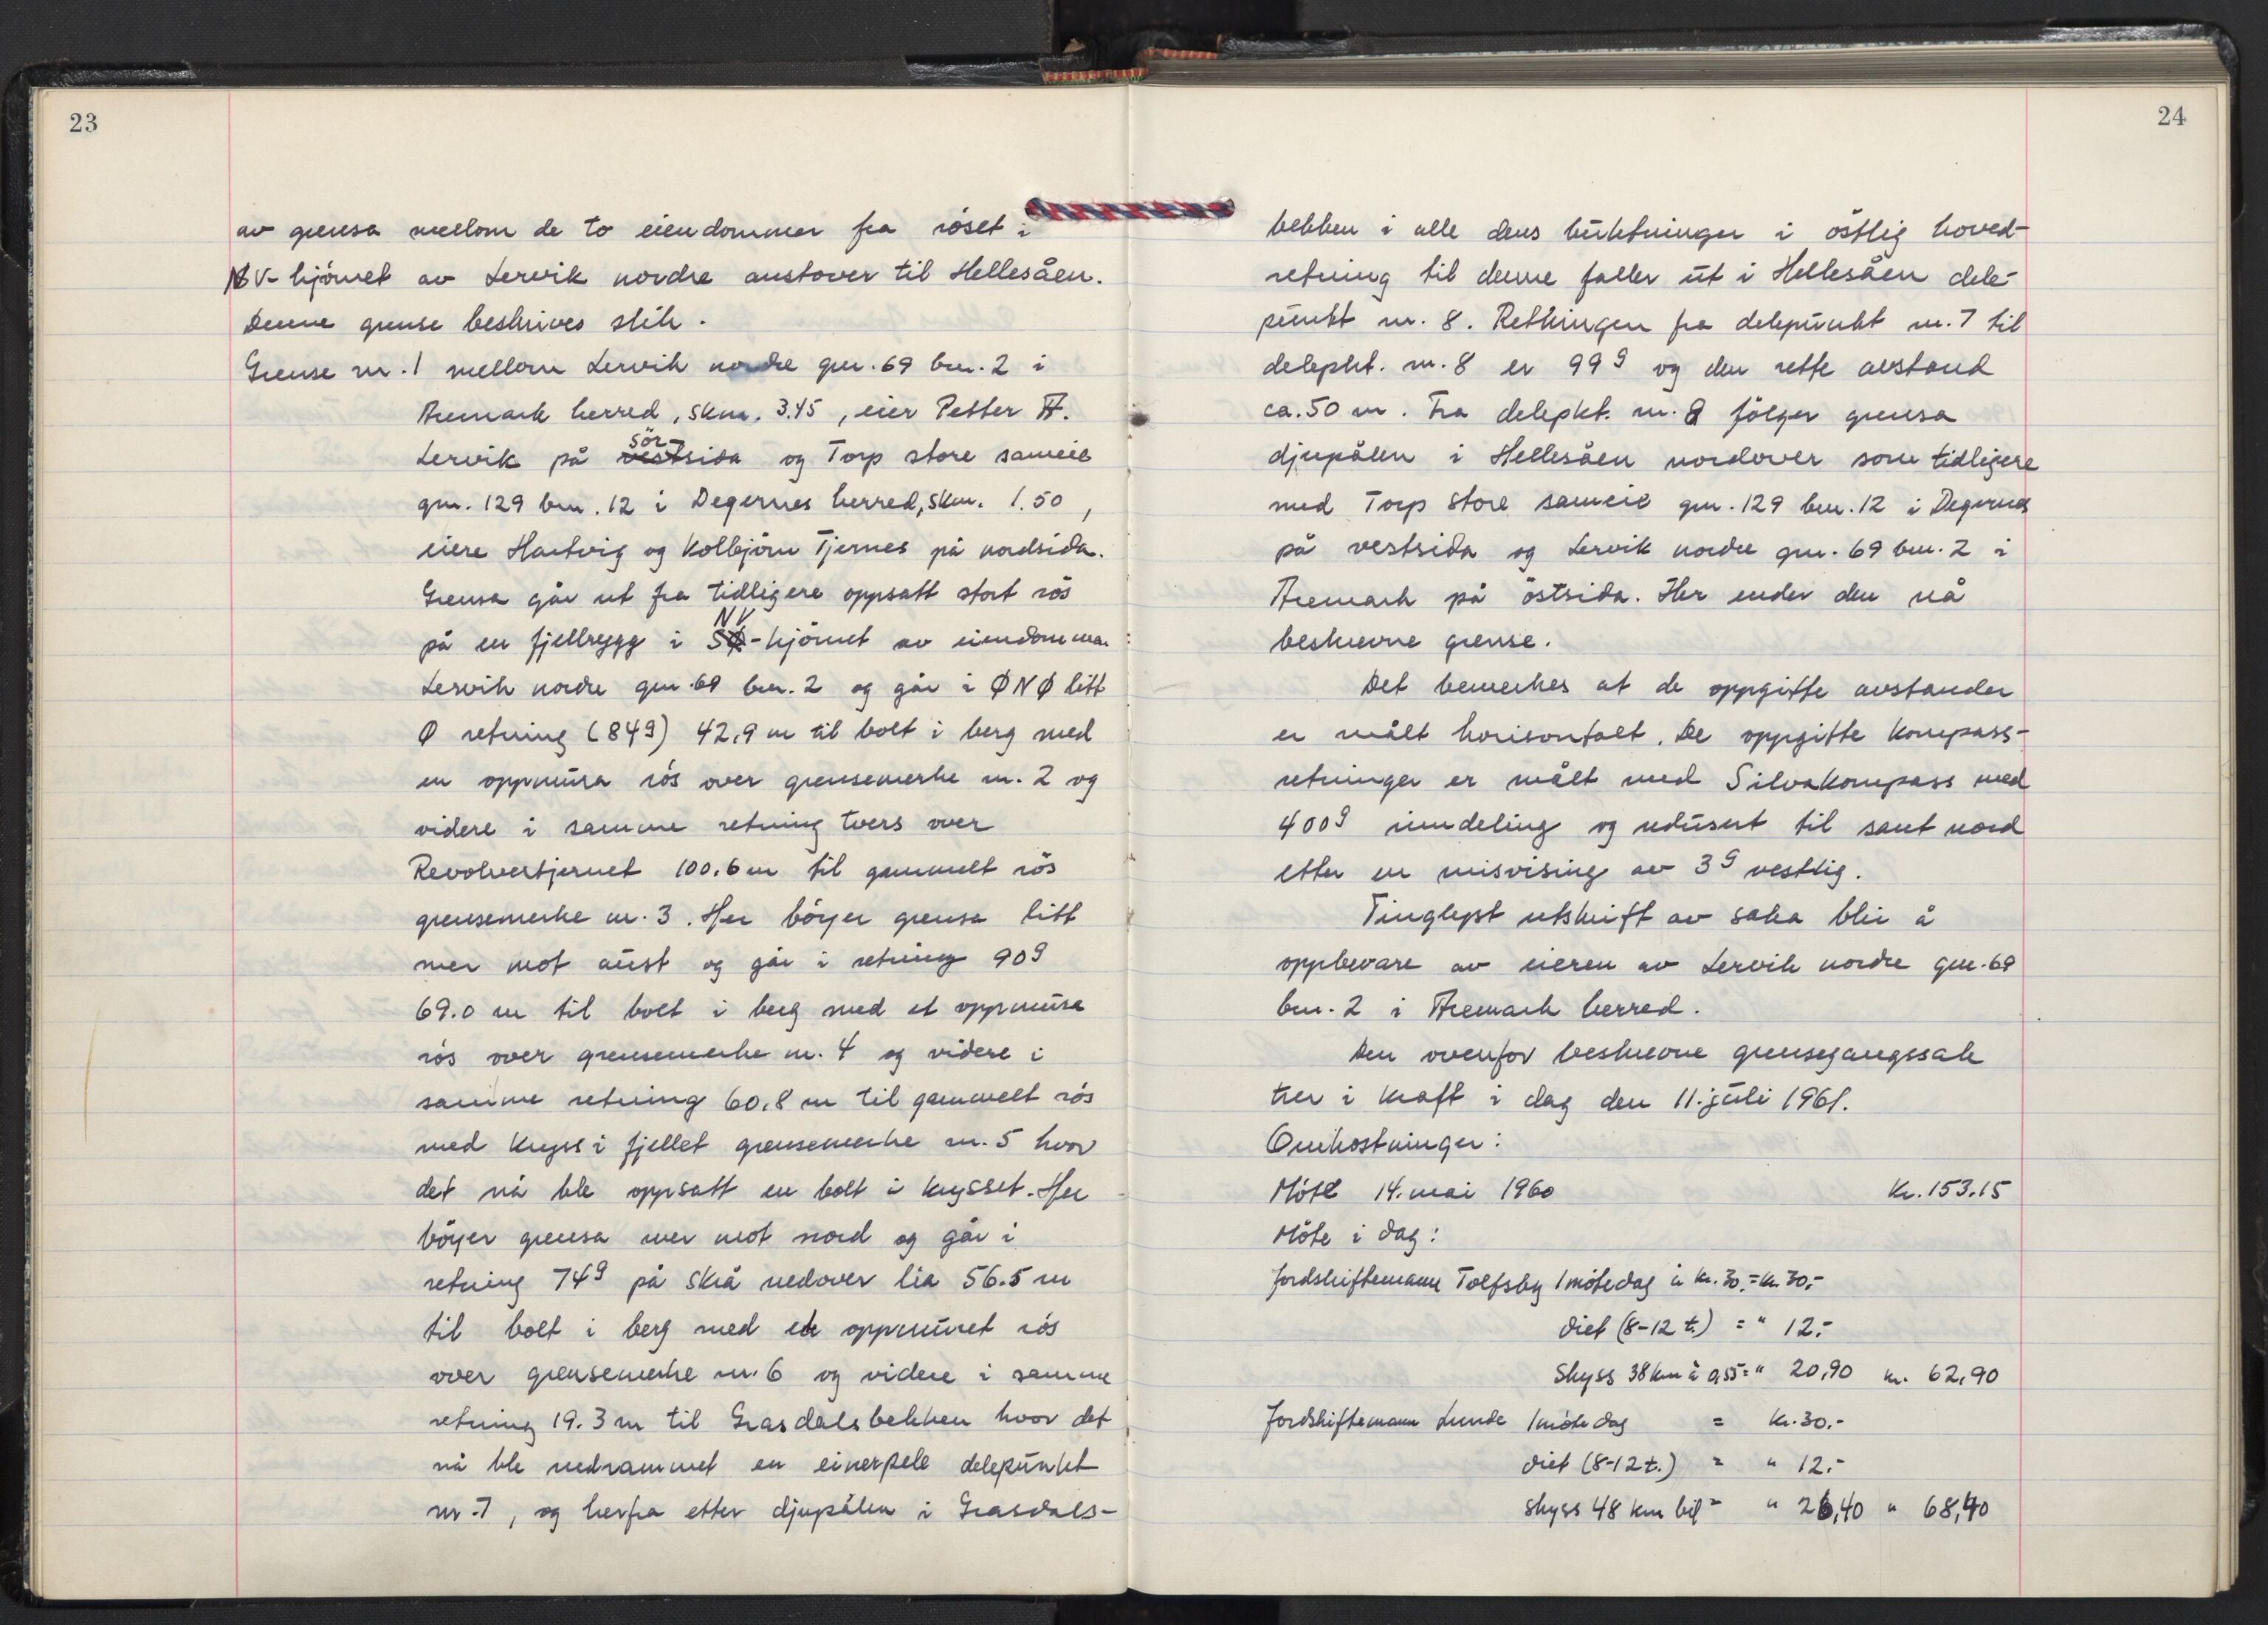 23
av grensa mellom de to eiendommer fra röset i
NV-hjörnet av Lervik nordre austover til Hellesåen.
Denne grense beskrives slik.
Grense nr. 1 mellom Lervik nordre gnr. 69 bnr. 2 i
Aremark herred, skm. 3.45, eier Petter A.
Lervik på sör-
vestsida og Torp store sameie
gnr. 129 bnr. 12 i Degernes herred, skm. 1.50,
eiere Hartvig og Kolbjörn Tjernes på nordsida.
Grensa går ut fra tidligere oppsatt stort rös
på en fjellrygg i NV
SØ-hjörnet av eiendommen
Lervik nordre gnr. 69 bnr. 2 og går i ØNØ litt
Ø retning (84g) 42,9 m til bolt i berg med
en oppmura rös over grensemerke nr. 2 og
videre i samme retning tvers over
Revolvertjernet 100.6 m til gammelt rös
grensemerke nr. 3. Her böyer grensa litt
mer mot aust og går i retning 90g
69.0 m til bolt i berg med et oppmura
rös over grensemerke nr. 4 og videre i
samme retning 60,8 m til gammelt rös
med kryss i fjellet grensemerke nr. 5 hvor
det nå ble oppsatt en bolt i krysset. Her
böyer grensa mer mot nord og går i
retning 74g på skrå nedover lia 56.5 m
til bolt i berg med en oppmuret rös
over grensemerke nr. 6 og videre i samme
retning 19.3 m til Grasdalsbekken hvor det
nå ble nedrammet en einerpele delepunkt
nr. 7, og herfra etter djupålen i Grasdals-
24
bekken i alle dens buktninger i östlig hoved-
retning til denne faller ut i Hellesåen dele-
punkt nr. 8. Retningen fra delepunkt nr. 7 til
delepkt. nr. 8 er 99g og den rette avstand
ca. 50 m. Fra delepkt. nr. 8 fölger grensa
djupålen i Hellesåen nordover som tidligere
med Torp store sameie gnr. 129 bnr. 12 i Degernes
på vestsida og Lervik nordre gnr. 69 bnr. 2 i
Aremark på östsida. Her ender den nå
beskrevne grense.
Det bemerkes at de oppgitte avstander
er målt horisontalt. De oppgitte kompass-
retninger er målt med Silvakompass med
400g inndeling og redusert til sant nord
etter en misvising av 3g vestlig.
Tinglyst utskrift av saka blir å
oppbevare av eieren av Lervik nordre gnr. 69
bnr. 2 i Aremark herred.
Den ovenfor beskrevne grensegangssak
trer i kraft i dag den 11. juli 1961.
Omkostninger:
Möte 14. mai 1960 Kr. 153.15
Möte i dag:
Jordskiftemann Tolfsby 1 mötedag à kr. 30.- = kr. 30,-
diet (8-12 t.) = " 12.-
Skyss 38 km à 0,55 = " 20,90 kr. 62,90
Jordskiftemann Lunde 1 mötedag = kr. 30.-
diet (8-12 t.) = " 12.-
skyss 48 km bil = " 26,40 " 68,40